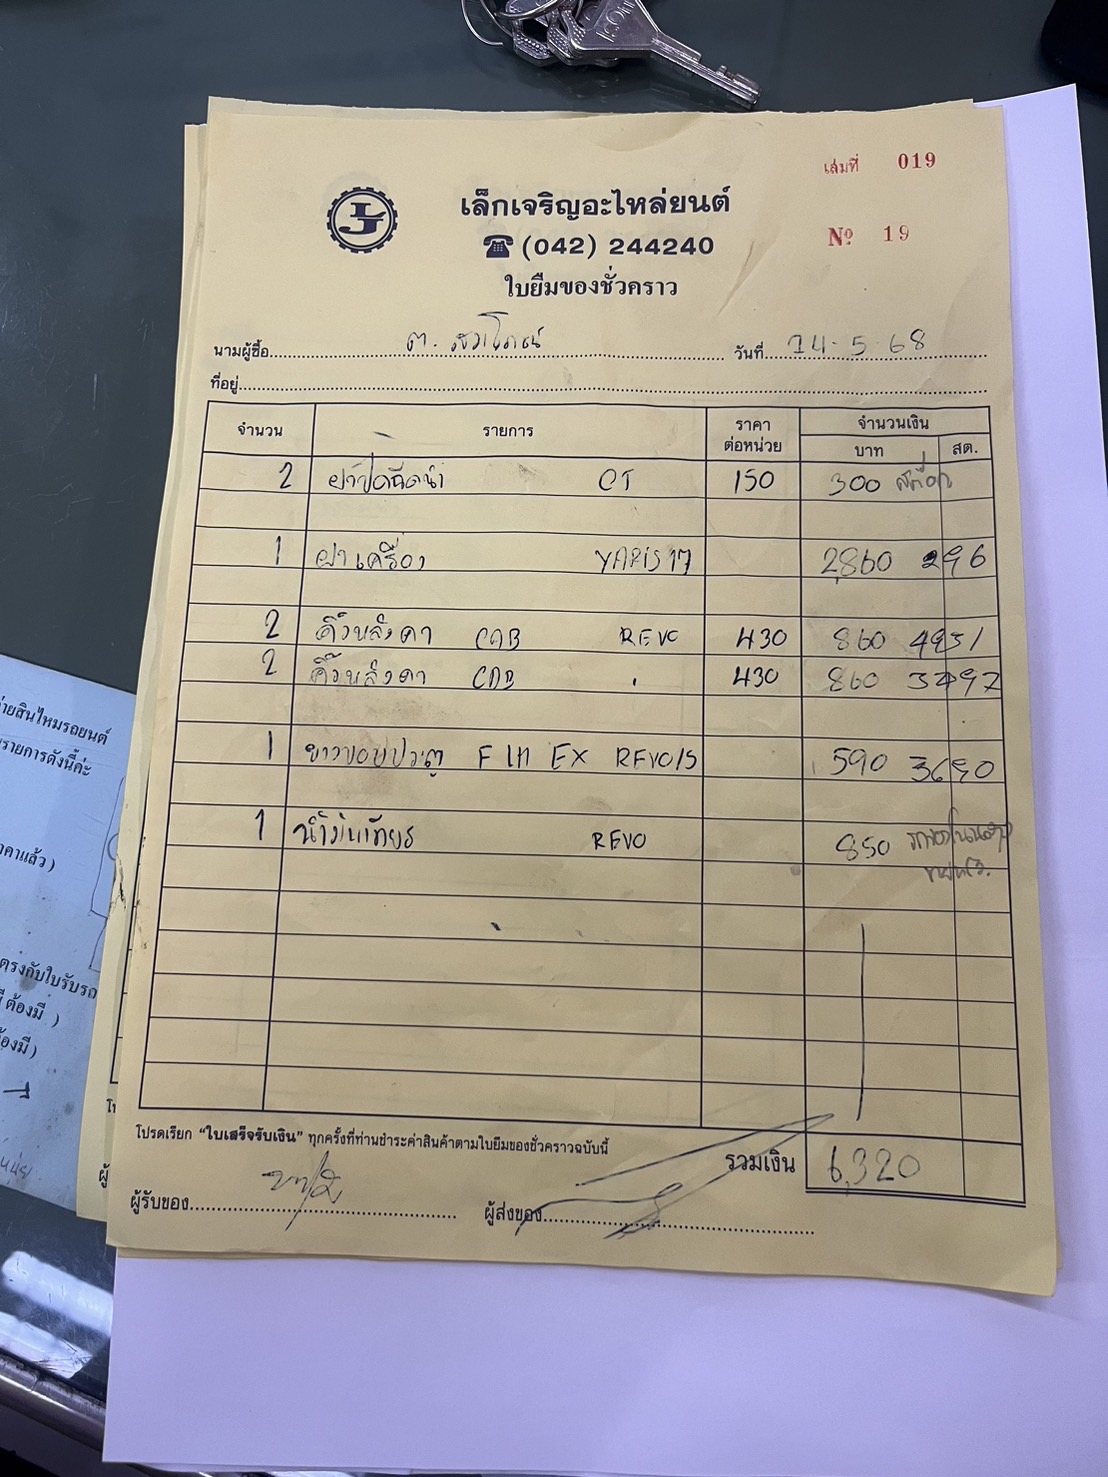 เล่มที่ 019
LJ
เล็กเจริญอะไหล่ยนต์
(042) 244240
Nº 19
ใบยืมของชั่วคราว
นามผู้ซื้อ ต. วันที่ 14-5-68
ที่อยู่
จำนวน รายการ ราคาต่อหน่วย จำนวนเงิน
บาท สต.
2 ฝาปิดฉีดน้ำ CT 150 300 สต๊อก
1 ฝาเครื่อง YARIS 17 2,860 296
2 คิ้วหลังคา CAB REVO 430 860 4951
2 คิ้วหลังคา CAB 430 860 3497
1 ยางขอบประตู F IN EX REVO/S 590 3690
1 REVO 850
โปรดเรียก “ใบเสร็จรับเงิน” ทุกครั้งที่ท่านชำระค่าสินค้าตามใบยืมของชั่วคราวฉบับนี้
รวมเงิน 6,320
ผู้รับของ ผู้ส่งของ
่ายสินไหมรอยนต์
รายการดังนี้ค่ะ
คาแล้ว)
ตรงกับใบรับรถ
ต้องมี )
้องมี)